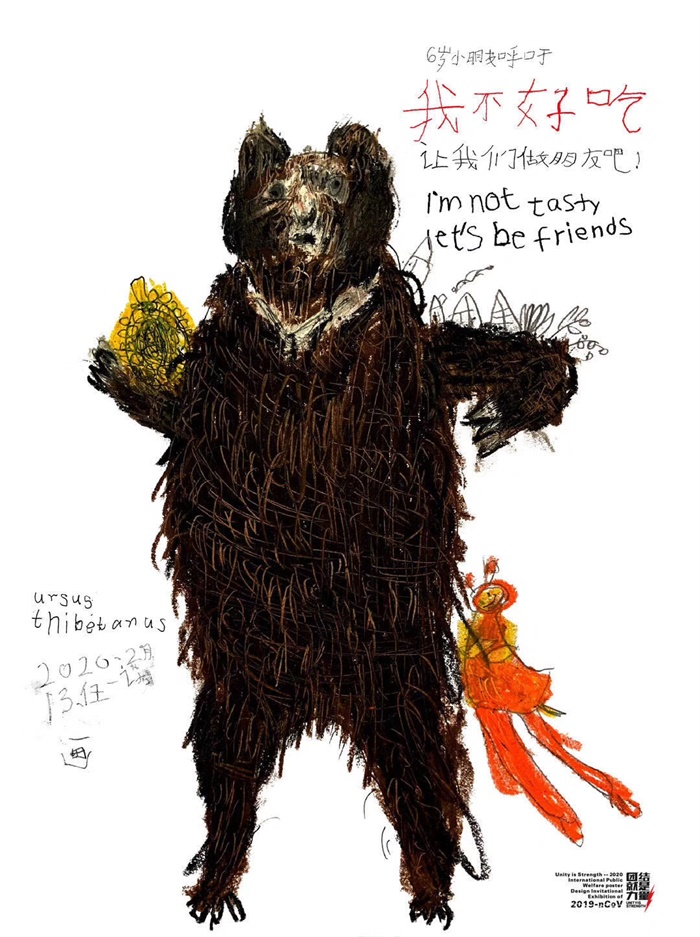 6岁小朋友呼吁
我不好吃
让我们做朋友吧!
i'm not tasty
let's be friends
ursus
thibetanus
2020.2月
13.任一诺
画
Unity is Strength -- 2020
International Public
Welfare poster
Design Invitational
Exhibition of
2019-nCoV
团结
就是
力量
UNITY IS
STRENGTH